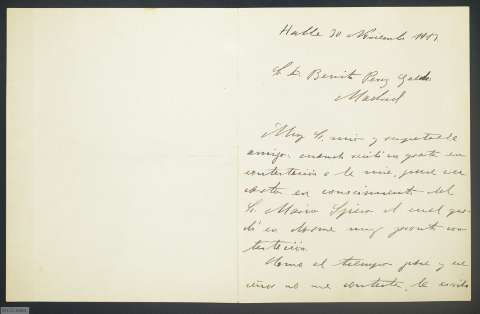 Halle 30 Noviembre 1887.
Sr. D. Benito Perez Galdos
Madrid
Muy Sr. mio y respetable
amigo: cuando recibi su grata en
contestacion a la mia, puse su
carta en conocimiento del
Sr. Mario Spiro el cual que-
dó en darme muy pronto con-
testación.
Como el tiempo pasa y el
Señor no me contesta, le escribo